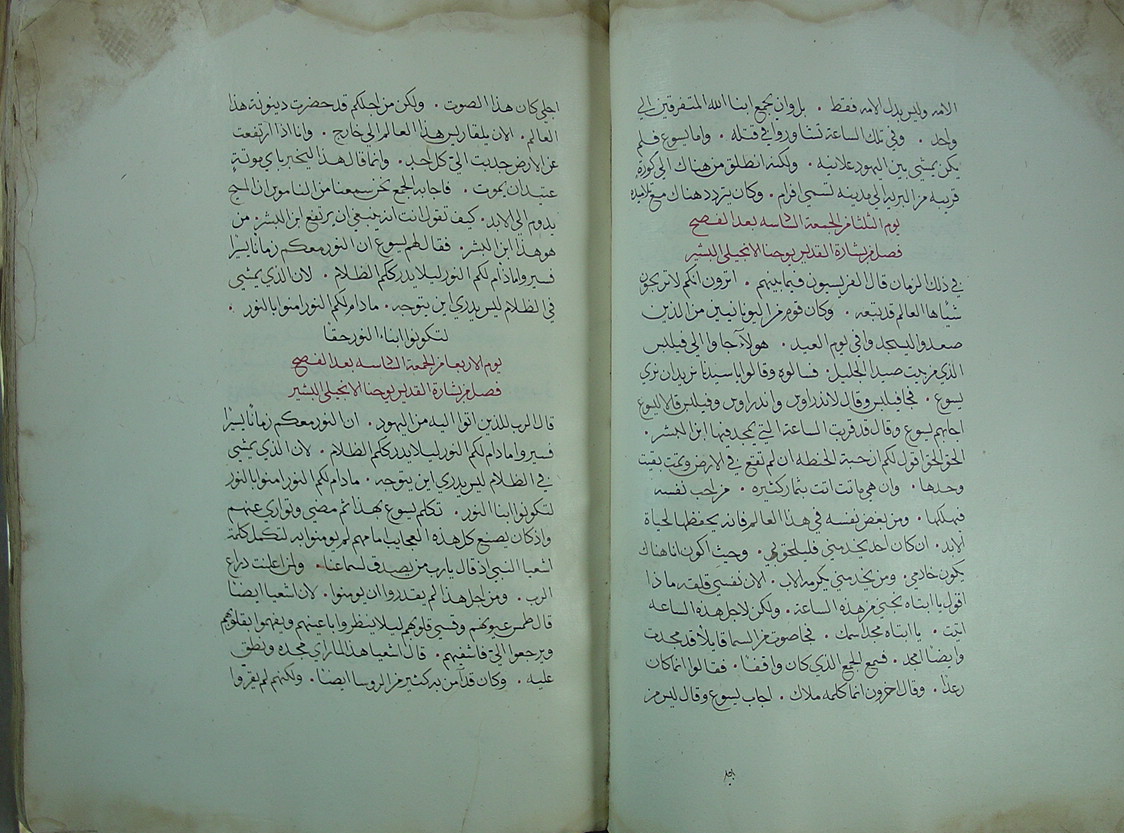 الامه وليس بدل الامه فقط . بل وان يجمع ابنا الله المتفرقين الى
واحد . وفى تلك الساعة تشاوروا فى قتله . واما يسوع فلم
يكن يمشى بين اليهود علانيه . ولكنه انطلق من هناك الى كورة
قريبه من البريه الى مدينه تسمى افرام . وكان يتردد هناك مع تلاميذه
يوم الثلثا من الجمعة السادسه بعد الفصح
فصل من بشارة القديس يوحنا الانجيلى البشير
فى ذلك الزمان قال الفريسيون فيما بينهم . اترون انكم لا تربحون
شيًا ها العالم قد تبعه . وكان قوم من اليونانيين من الذين
صعدوا ليسجدوا فى يوم العيد . هولآء جاوا الى فيلبس
الذى من بيت صيدا الجليل . فسالوه وقالوا يا سيدنا نريد ان نرى
يسوع . فجا فيلبس وقال لاندراوس واندراوس وفيلبس قالا ليسوع
اجابهم يسوع وقال قد قربت الساعة التى يتمجد فيها ابن البشر .
الحق الحق اقول لكم ان حبة الحنطه ان لم تقع فى الارض وتمت بقيت
وحدها . وان هى ماتت اتت بثمار كثيره . من احب نفسه
فيهلكها . ومن بغض نفسه فى هذا العالم فانه يحفظها لحياة
الابد . ان كان احد يخدمنى فليلحق بى . وحيث اكون انا هناك
يكون خادمى . ومن يخدمنى يكرمه الاب . الان نفسى قلقه ماذا
اقول يا ابتاه نجنى من هذه الساعة . ولكن لاجل هذه الساعه
اتيت . يا ابتاه مجد اسمك . فجا صوت من السما قايلًا قد مجدت
وايضًا امجد . فسمع الجمع الذى كان واقفًا . فقالوا انما كان
رعدًا . وقال اخرون انما كلمه ملاك . اجاب يسوع وقال ليس من
اجلى كان هذا الصوت . ولكن من اجلكم قد حضرت دينونة هذا
العالم . الان يلقا ريس هذا العالم الى خارج . وانا اذا ارتفعت
عن الارض جذبت الىّ كل احد . وانما قال هذا ليخبر باى موتةٍ
عتيد ان يموت . فاجابه الجمع نحن سمعنا من الناموس ان المسيح
يدوم الى الابد . كيف تقول انت انه ينبغى ان يرتفع ابن البشر . من
هو هذا ابن البشر . فقال لهم يسوع ان النور معكم زمانًا يسيرًا
فسيروا ما دام لكم النور ليلا يدرككم الظلام . لان الذى يمشى
فى الظلام ليس يدرى اين يتوجه . ما دام لكم النور امنوا بالنور .
لتكونوا ابناء النور حقًا
يوم الاربعا من الجمعة السادسه بعد الفصح
فصل من بشارة القديس يوحنا الانجيلى البشير
قال الرب للذين اتوا اليه من اليهود . ان النور معكم زمانًا يسيرًا
فسيروا ما دام لكم النور ليلا يدرككم الظلام . لان الذى يمشى
فى الظلام ليس يدرى اين يتوجه . ما دام لكم النور امنوا بالنور
لتكونوا ابنا النور . تكلم يسوع بهذا ثم مضى وتوارى عنهم
واذ كان يصنع كل هذه العجايب امامهم لم يومنوا به لتكمل كلمة
اشعيا النبى اذ قال يا رب من يصدق لسماعنا . ولمن اعلنت ذراع
الرب . ومن اجل هذا لم يقدروا ان يومنوا . لان اشعيا ايضًا
قال طمس عيونهم وقسى قلوبهم ليلا ينظروا باعينهم ويفهموا بقلوبهم
ويرجعوا الىّ فاشفيهم . قال اشعيا هذا لما راى مجده ونطق
عليه . وكان قد آمن به كثير من الروسا ايضًا . ولكنهم لم يقروا